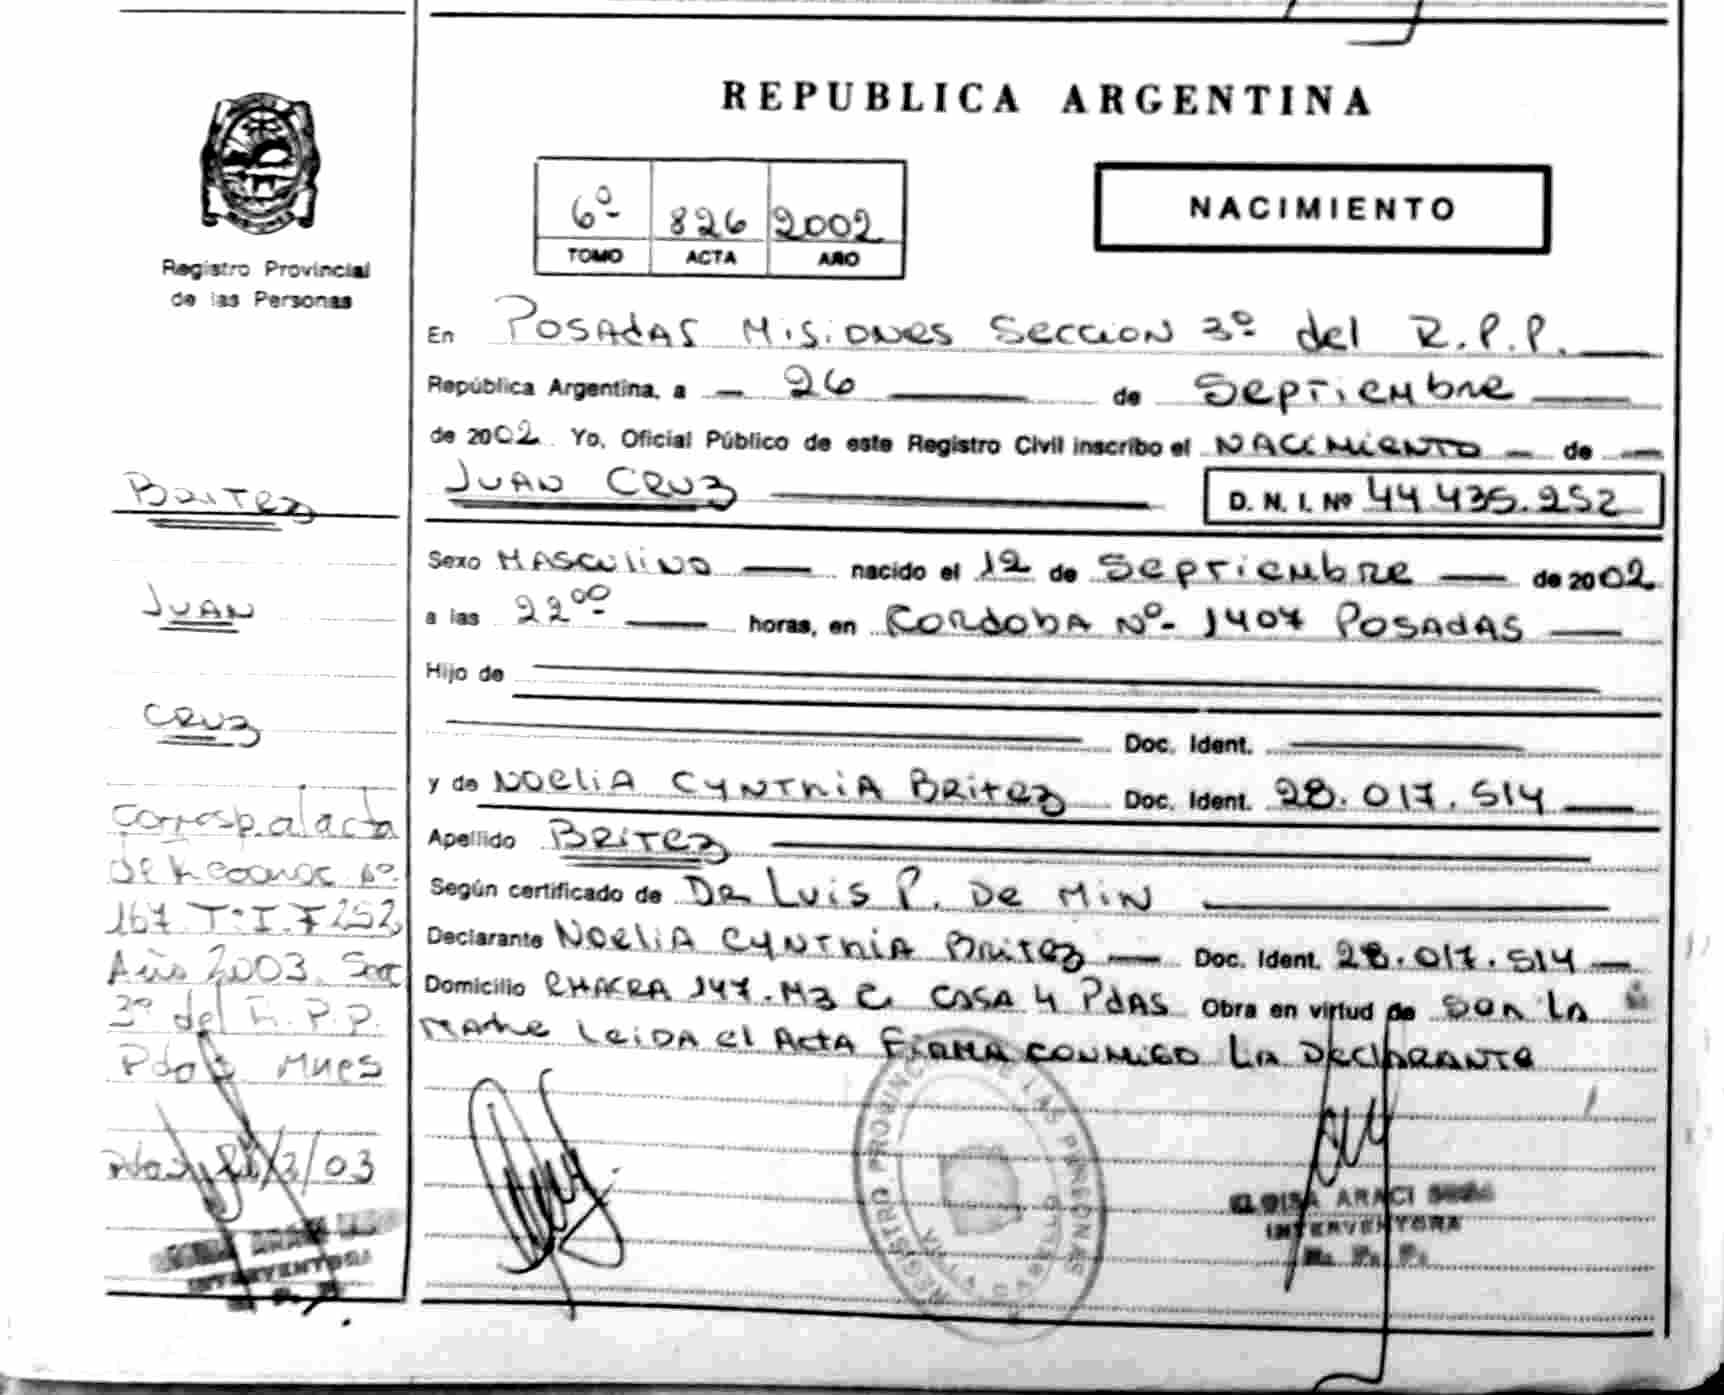 REPUBLICA ARGENTINA
Registro Provincial
de las Personas
6º 826 2002
TOMO ACTA AÑO
NACIMIENTO
En POSADAS MISIONES SECCION 3º del R.P.P.
República Argentina, a 26 de SEPTIEMBRE
de 2002 Yo, Oficial Público de este Registro Civil inscribo el NACIMIENTO de
JUAN CRUZ
D. N. I. Nº 44.435.252
BRITEZ
JUAN
CRUZ
Sexo MASCULINO nacido el 12 de SEPTIEMBRE de 2002
a las 22⁰⁰ horas, en CORDOBA Nº 1407 POSADAS
Hijo de
Doc. Ident.
y de NOELIA CYNTHIA BRITEZ Doc. Ident. 28.017.514
Apellido BRITEZ
Según certificado de DR LUIS P. DE MIN
Declarante NOELIA CYNTHIA BRITEZ Doc. Ident. 28.017.514
Domicilio CHACRA 147. MZ C CASA 4 PdAS Obra en virtud de SER LA
MADRE LEIDA el ACTA FIRMA CONMIGO LA DECLARANTE
Corresp. al acta
de Reconoc Nº
167. T:I. F 252
Año 2003. Secc
3º del R.P.P.
Pdas Mnes
Pdas /3/03
REGISTRO PROVINCIAL DE LAS PERSONAS
ELOISA ARACI
INTERVENTORA
R. P. P.
INTERVENTORA